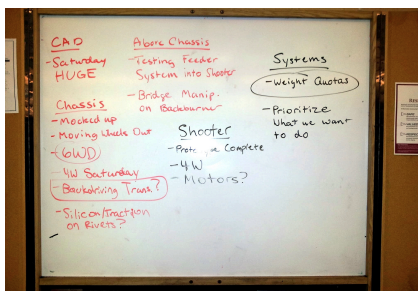 CAD
- Saturday
HUGE
Chassis
- Mocked up
- Moving Wheels Out
- 6WD
- 4W Saturday
- Backdriving Trans.?
- Silicon/Traction
on Rivets?
Above Chassis
- Testing Feeder
System into Shooter
- Bridge Manip.
on Backburner
Shooter
- Complete
- 4W
- Motors?
Systems
- Weight Quotas
- Prioritize
What we want
to do